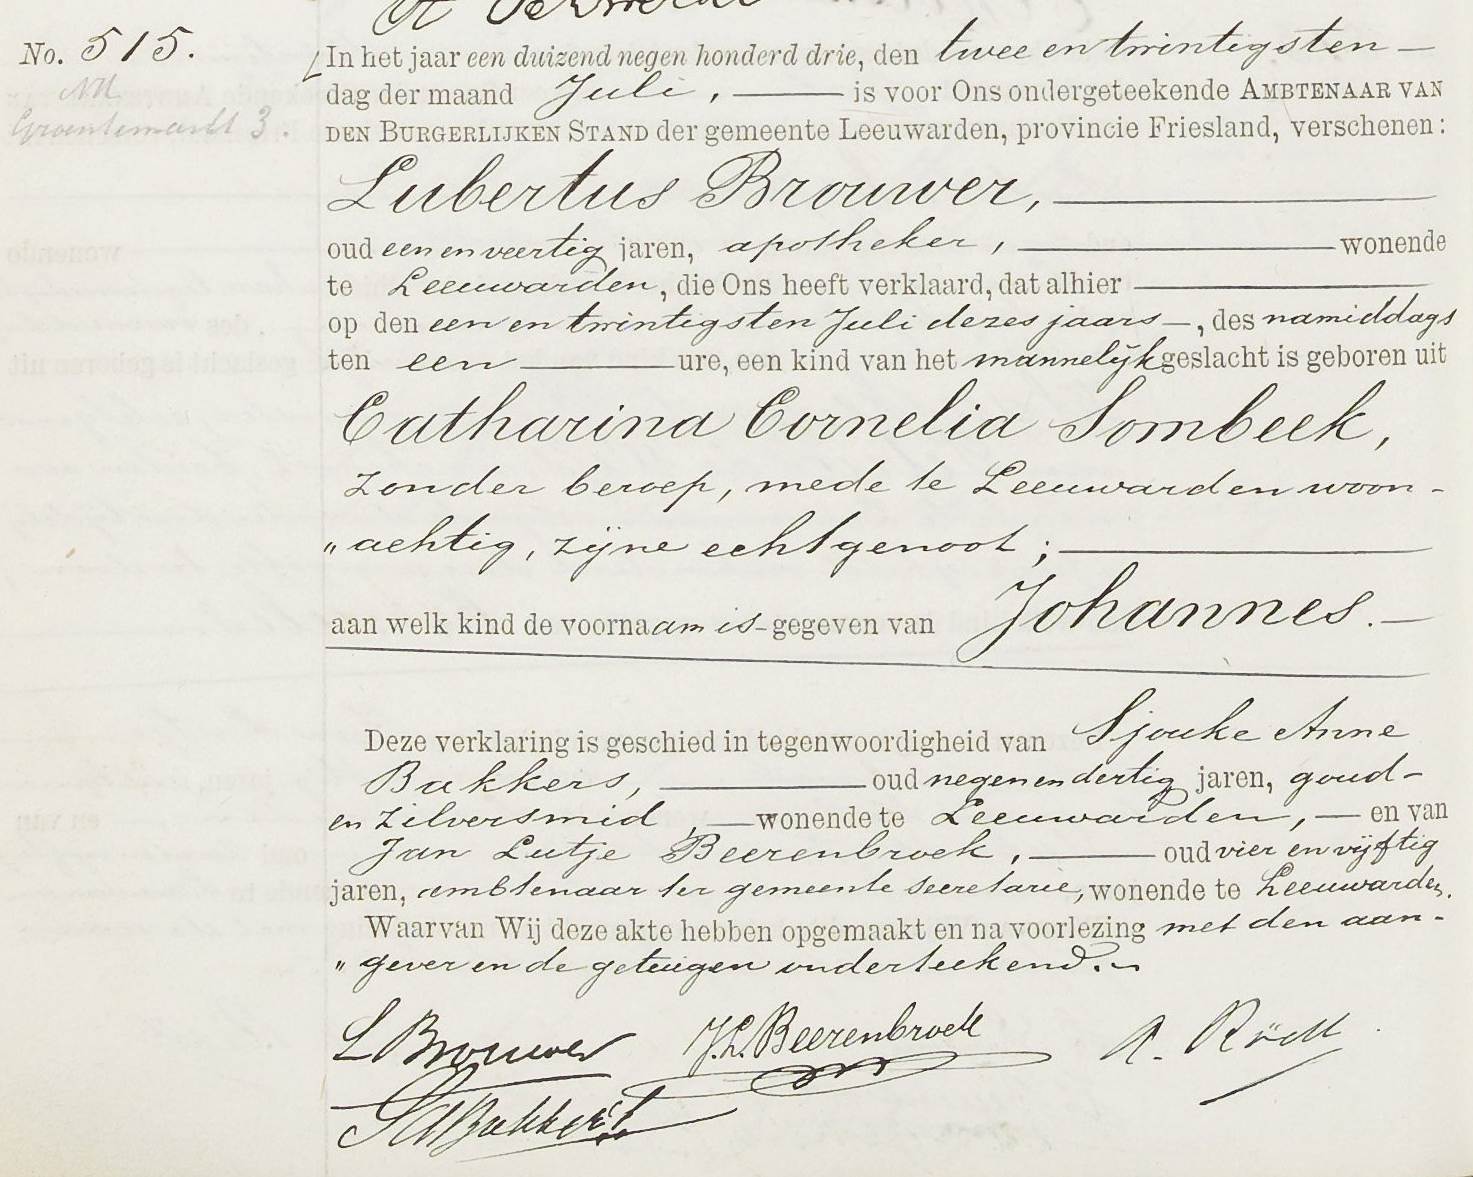 No. 515.
NH
Groentemarkt 3.
In het jaar een duizend negen honderd drie, den twee en twintigsten —
dag der maand Juli, — is voor Ons ondergeteekende AMBTENAAR VAN
DEN BURGERLIJKEN STAND der gemeente Leeuwarden, provincie Friesland, verschenen:
Lubertus Brouwer, —
oud een en veertig jaren, apotheker, — wonende
te Leeuwarden, die Ons heeft verklaard, dat alhier —
op den een en twintigsten Juli dezes jaars —, des namiddags
ten een — ure, een kind van het mannelijk geslacht is geboren uit
Catharina Cornelia Sombeek,
zonder beroep, mede te Leeuwarden woon-
„achtig, zijne echtgenoot; —
aan welk kind de voornaam is - gegeven van Johannes. —
Deze verklaring is geschied in tegenwoordigheid van Sjouke Anne
Bakkers, — oud negen en dertig jaren, goud-
en zilversmid, — wonende te Leeuwarden, — en van
Jan Lutje Beerenbroek, — oud vier en vijftig
jaren, ambtenaar ter gemeente secretarie, wonende te Leeuwarden.
Waarvan Wij deze akte hebben opgemaakt en na voorlezing met den aan-
„gever en de getuigen onderteekend.
L Brouwer J.L. Beerenbroek
SABakkers